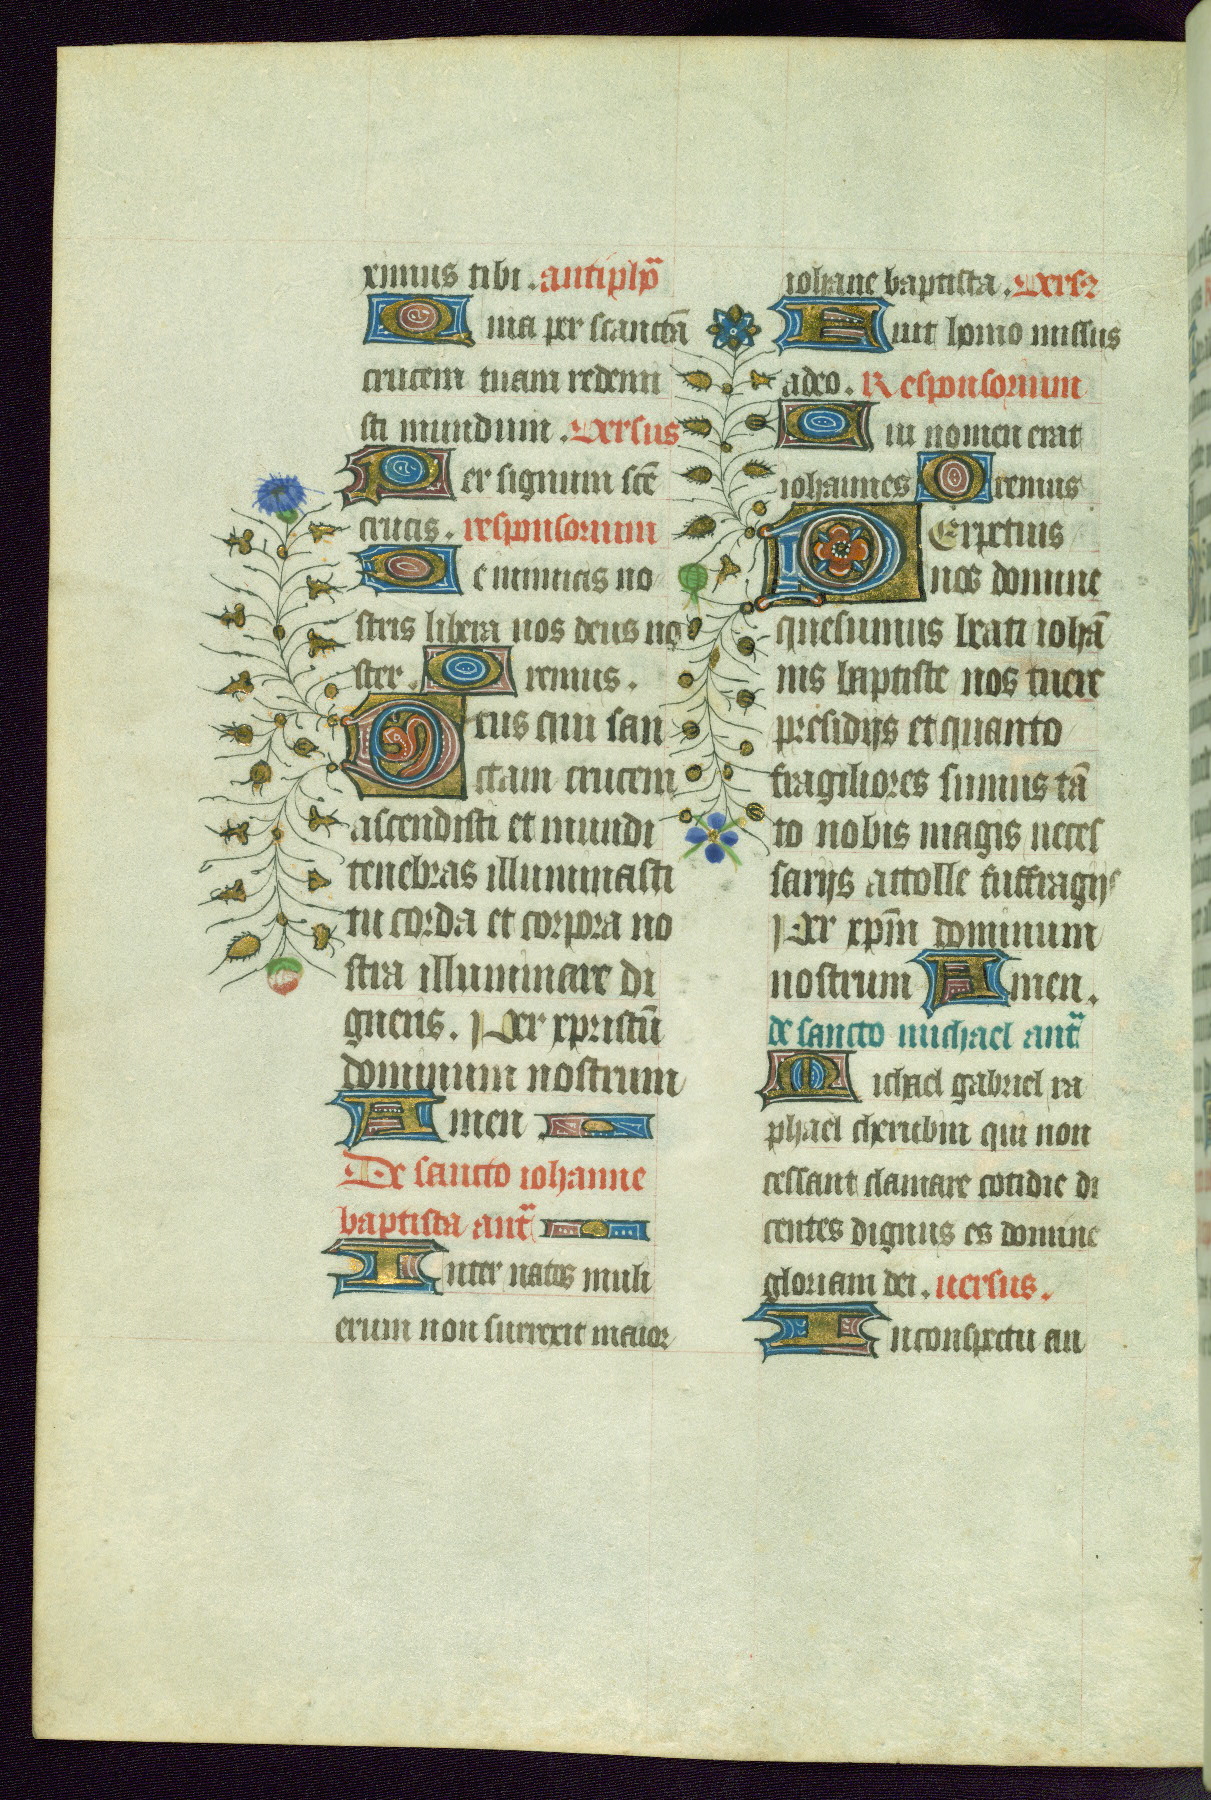 ximus tibi. antiphõ
Quia per scanctã
crucem tuam redemi
sti mundum. Versus
Per signum scẽ
crucis. responsorium
De inimicis no
stris libera nos deus no
ster. Oremus.
Deus qui san
ctam crucem
ascendisti et mundi
tenebras illuminasti
tu corda et corpora no
stra illuminare di
gneris. Per xpristũ
dominum nostrum
Amen
De sancto iohanne
baptista ant̃
Inter natos muli
erum non surrexit maior
iohãne baptista. Vers
Fuit homo missus
a deo. Responsorium
Cui nomen erat
iohannes Oremus
PErpetuis
nos domine
quesumus beati iohã
nis baptiste nos tuere
presidijs et quanto
fragiliores sumus tã
to nobis magis neces
sarijs attolle suffragijs
Per xp̃m dominum
nostrum Amen.
de sancto michael ant̃
Michael gabriel ra
phael cherubin qui non
cessant clamare cotidie di
centes dignus es domine
gloriam dei. uersus.
In conspectu an